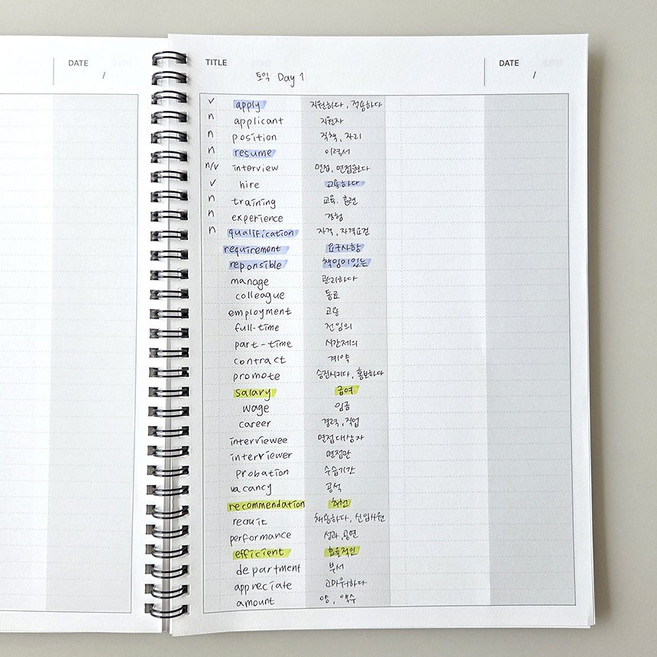 DATE
/
TITLE
DATE
/
토익 Day 1
v apply 지원하다, 적용하다
n applicant 지원자
n position 직책, 자리
n resume 이력서
n/v interview 면접, 면접하다
v hire 고용하다
n training 교육, 훈련
n experience 경험
n qualification 자격, 자격요건
requirement 요구사항
reponsible 책임이 있는
manage 관리하다
colleague 동료
employment 고용
full-time 전임의
part-time 시간제의
contract 계약
promote 승진시키다, 홍보하다
salary 급여
wage 임금
career 경력, 직업
interviewee 면접 대상자
interviewer 면접관
probation 수습기간
vacancy 공석
recommendation 추천
recruit 채용하다, 신입사원
performance 성과, 공연
efficient 효율적인
department 부서
appreciate 고마워하다
amount 양, 액수